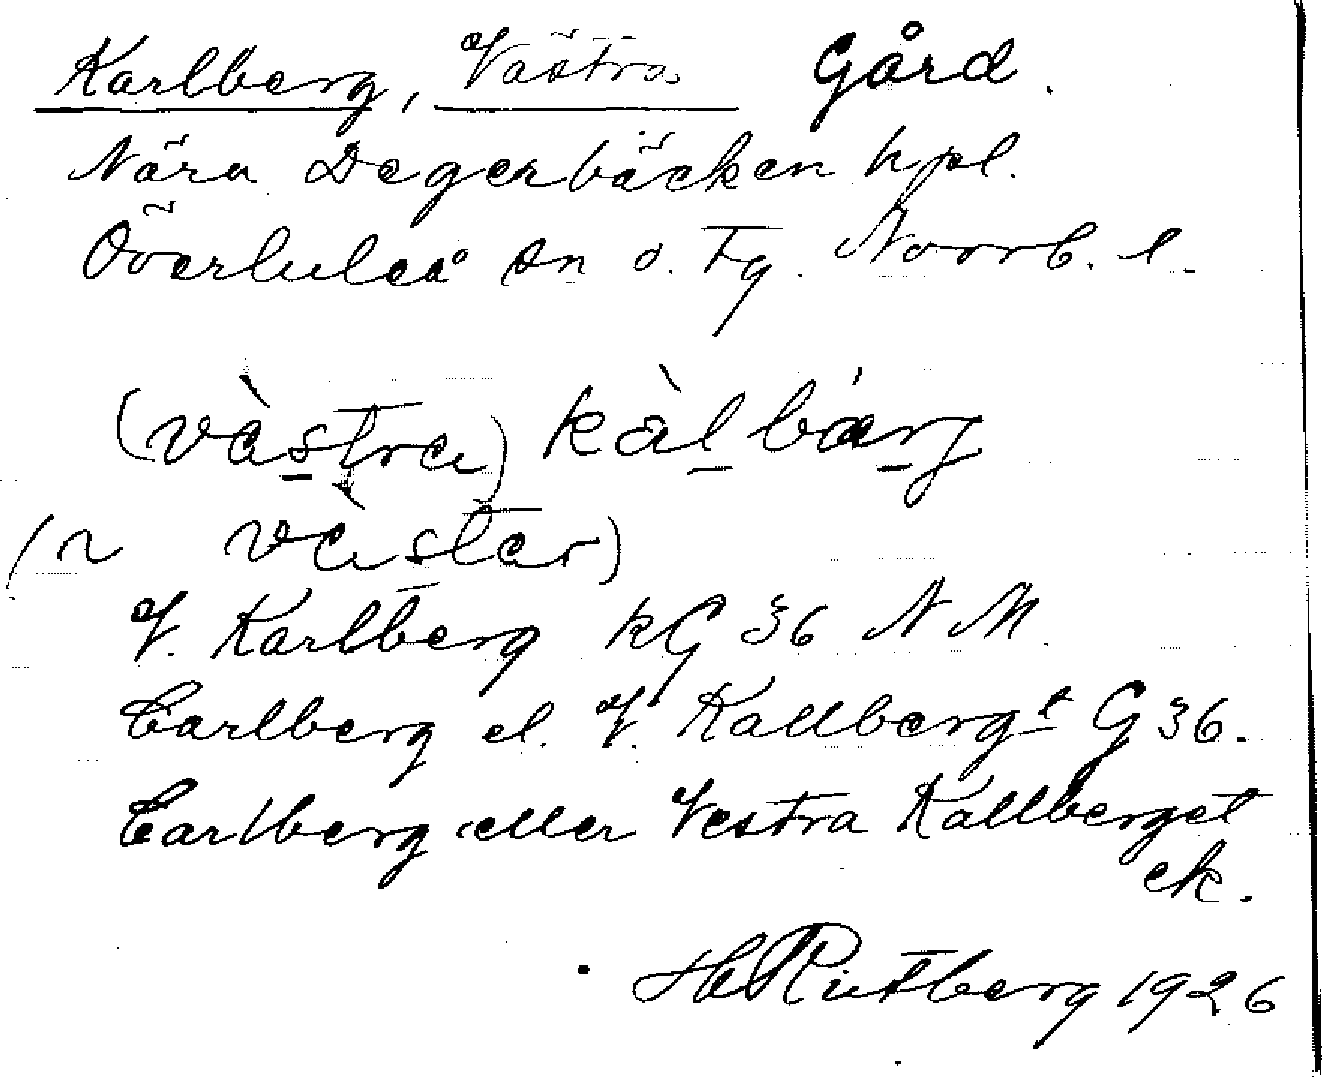 Karlberg, Västra Gård.
Nära Degerbäcken hpl.
Överluleå sn o. Tg. Norrb. l.
(vàstra) kàlbárg
(~ vàstar)
V. Karlberg kG 36 NM.
Carlberg el. V. Kallbergt G 36.
Carlberg eller Vestra Kallberget
ek.
H Rutberg 1926